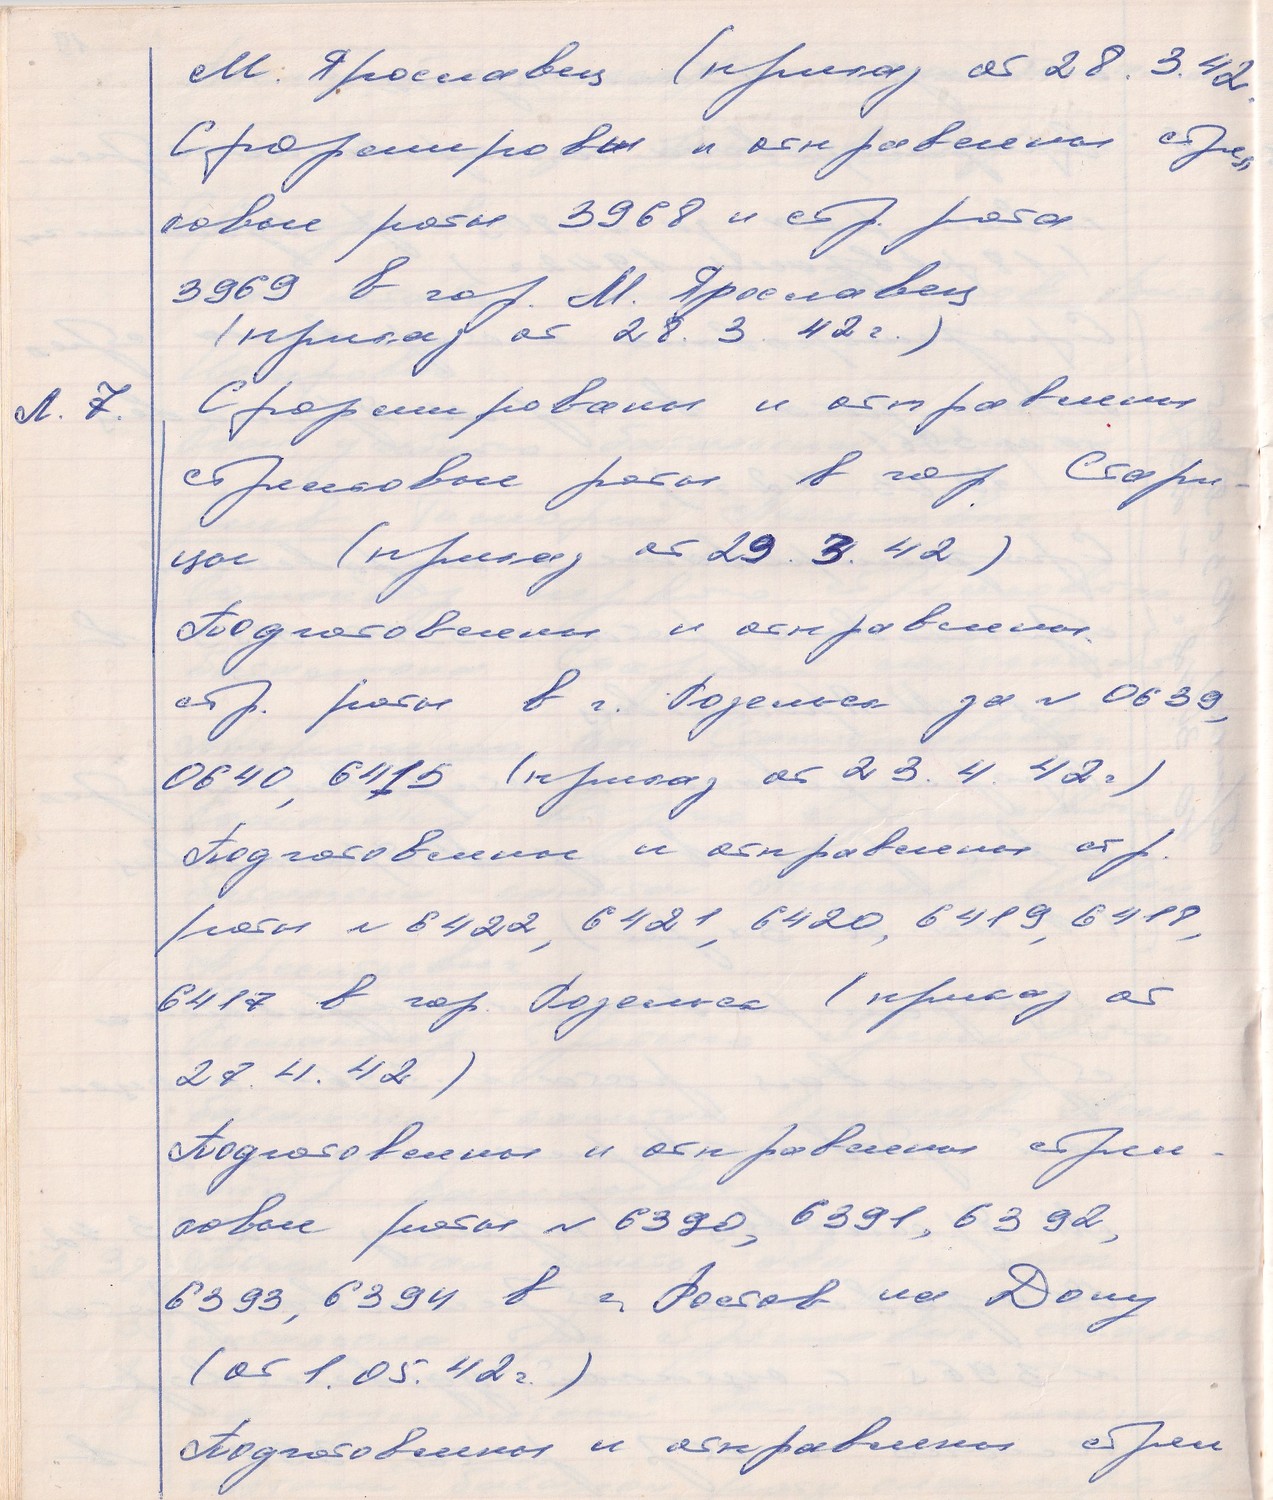 М. Ярославец (приказ от 28. 3. 42.
Сформировы и отправлены стрел
ковые роты 3968 и стр. рота
3969 в гор. М. Ярославец
(приказ от 28. 3. 42 г.)
Л. 7. Сформированы и отправлены
стрелковые роты в гор. Стари-
цы (приказ от 29. 3. 42)
Подготовлены и отправлены
стр. роты в г. Козельск за № 0639,
0640, 6415 (приказ от 23. 4. 42 г)
Подготовлены и отправлены стр.
роты № 6422, 6421, 6420, 6419, 6418,
6417 в гор. Козельск (приказ от
27. 4. 42)
Подготовлены и отправлены стрел-
ковые роты № 6390, 6391, 6392,
6393, 6394 в г. Ростов на Дону
(от 1. 05. 42 г.)
Подготовлены и отправлены стрел